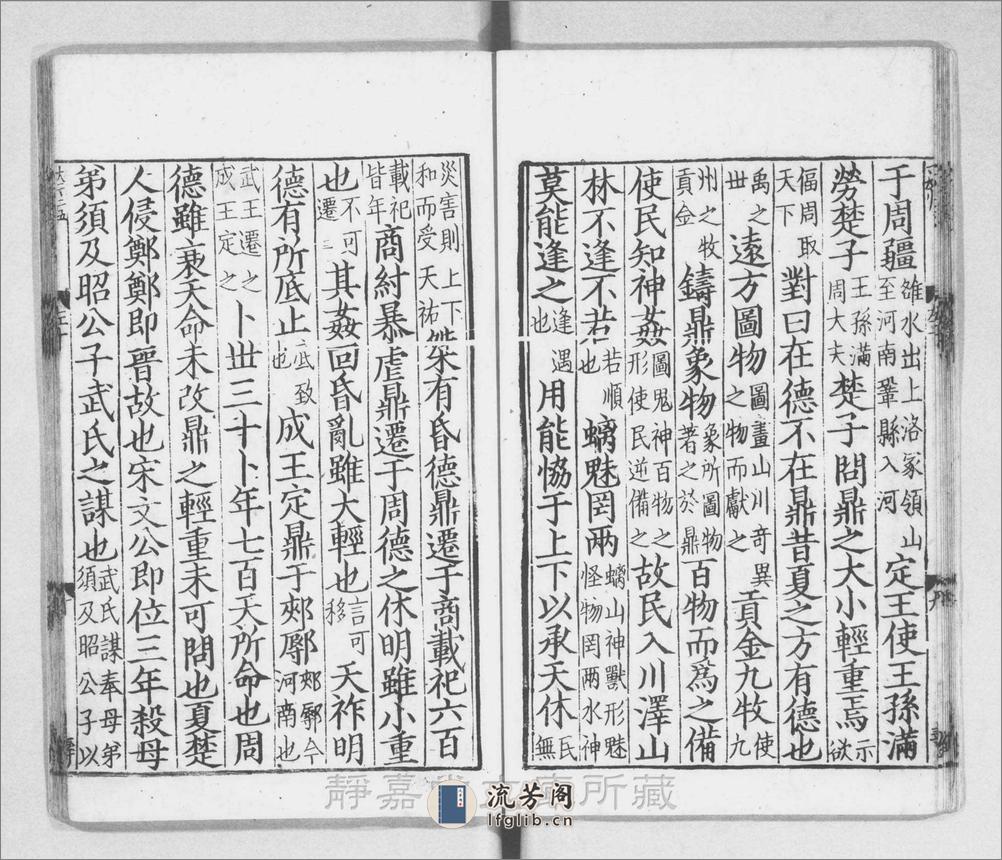 于周疆雒水出上洛冢領山至河南鞏縣入河定王使王孫滿
勞楚子王孫滿周大夫楚子問鼎之大小輕重焉示欲
偪周取天下對曰在德不在鼎昔夏之方有德也
禹之世遠方圖物圖畫山川奇異之物而獻之貢金九牧使九
州之牧貢金鑄鼎象物象所圖物著之於鼎百物而爲之備
使民知神姦圖鬼神百物之形使民逆備之故民入川澤山
林不逢不若若順也螭魅罔兩螭山神獸形魅怪物罔兩水神
莫能逢之逢遇也用能協于上下以承天休民無
災害則上下和而受天祐桀有昏德鼎遷于商載祀六百
載祀皆年商紂暴虐鼎遷于周德之休明雖小重
也不可遷其姦回昏亂雖大輕也言可移天祚明
德有所底止底致也成王定鼎于郟鄏郟鄏今河南也
武王遷之成王定之卜世三十卜年七百天所命也周
德雖衰天命未改鼎之輕重未可問也夏楚
人侵鄭鄭即晉故也宋文公即位三年殺母
弟須及昭公子武氏之謀也武氏謀奉母弟須及昭公子以
靜嘉 所藏
流芳阁
lfglib.cn